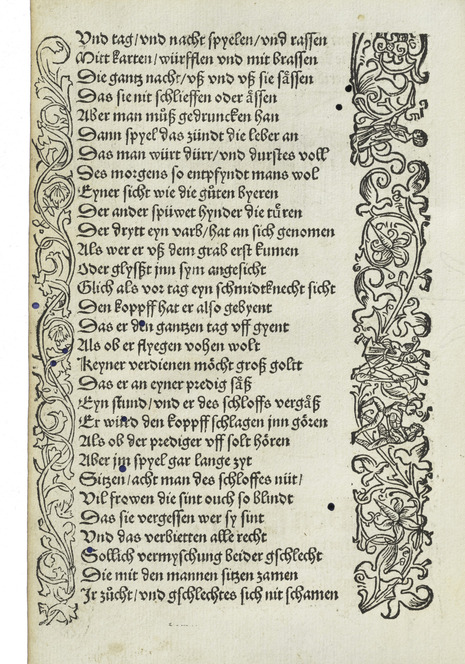 Vnd tag/vnd nacht spyelen/vnd rassen
Mitt karten/würfflen vnd mit brassen
Die gantz nacht/vß vnd vß sie sässen
Das sie nit schlieffen oder ässen
Aber man muͦß gedruncken han
Dann spyel das zündt die leber an
Das man würt dürr/vnd durstes voll
Des morgens so entpfyndt mans wol
Eyner sicht wie die guͦten byeren
Der ander spüwet hynder die türen
Der drytt eyn varb/hat an sich genomen
Als wer er vß dem grab erst kumen
Oder glyßt jnn sym angesicht
Glich als vor tag eyn schmidtknecht sicht
Den koppff hat er also gebyent
Das er den gantzen tag vff gyent
Als ob er flyegen vohen wolt
Keyner verdienen möcht groß goltt
Das er an eyner predig säß
Eyn stund/vnd er des schloffs vergäß
Er wird den koppff schlagen jnn gören
Als ob der prediger vff solt hören
Aber jm spyel gar lange zyt
Sitzen/acht man des schloffes nüt/
Vil frowen die sint ouch so blindt
Das sie vergessen wer sy sint
Vnd das verbietten alle recht
Sollich vermyschung beider gschlecht
Die mit den mannen sitzen zamen
Ir zücht/vnd gschlechtes sich nit schamen